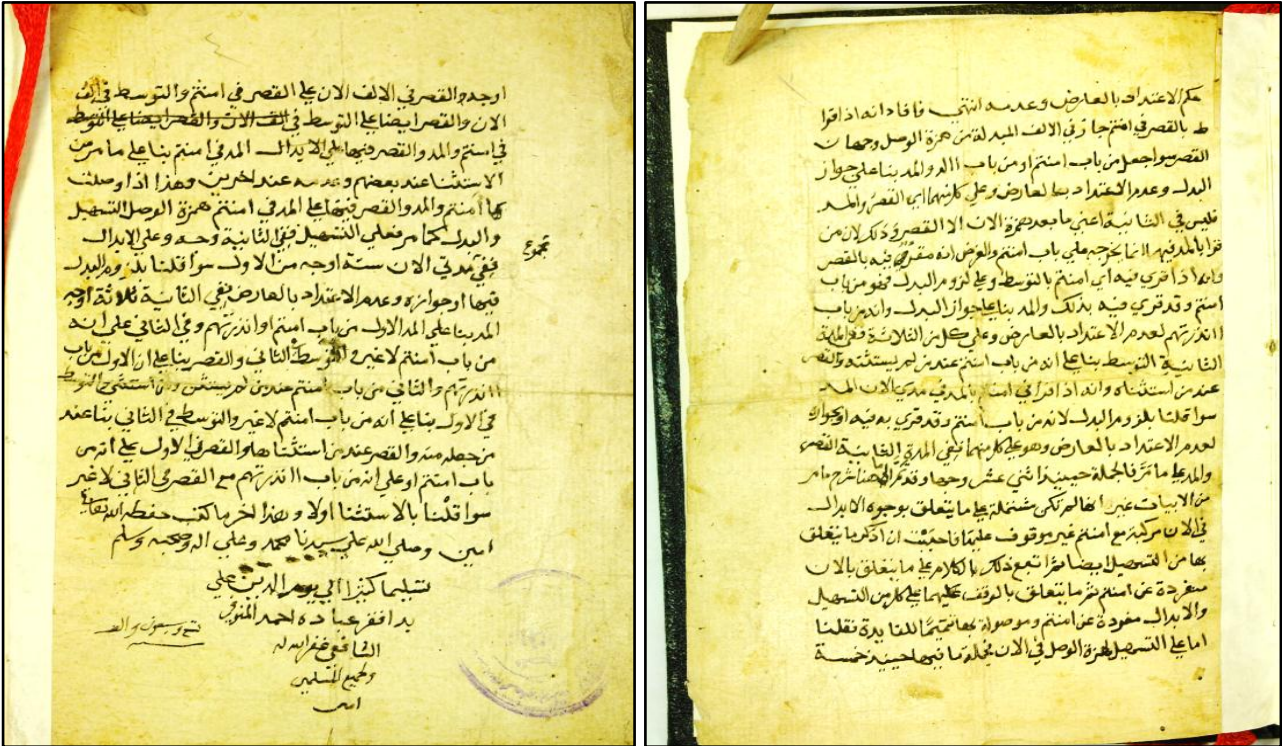 حكم الاعتداد بالعارض وعدمه انتهى فافاد انه اذا قرا
ط بالقصر في امنتم جاز في الالف المبدلة من همزة الوصل وجهان
القصر سوا جعل من باب امنتم او من باب االد والمد بنا علي جواز
البدل وعدم الاعتداد بالعارض وعلي كل منهما اي القصر والمد
فليس في الثانية اعني ما بعد همزة الان الا القصر وذلك لان من
قرا بالمد فيها انما يخرجه علي باب امنتم والغرض انه فيه بالقصر
وانه اذا قري فيه اي امنتم بالتوسط وعلي لزوم البدل فهو من باب
امنتم وقد قري فيه بذلك والمد بنا علي جواز البدل وانه من باب
اانذرتهم لعدم الاعتداد بالعارض وعلي كل من الثلاثة ففي المدة
الثانية التوسط بنا علي انه من باب امنتم عند من لم يستثنه والقصر
عند من استثناه وانه اذا قرا في امنتم بالمد في مدتي الان المد
سوا قلنا بلزوم البدل لانه من باب امنتم وقد قري به فيه او بجوازه
لعدم الاعتداد بالعارض وهو علي كل منهما ففي المدة الثانية القصر
والمد علي ما مر فالجملة حينيذ اثني عشر وجها وقد تم الي هنا شرح ما مر
من الابيات غير انها لم تكن مشتملة علي ما يتعلق بوجوه الابدال
في الان مركبة مع امنتم غير موقوف عليها فاحببت ان اذكر ما يتعلق
بها من التسهيل ايضا ثم اتبع ذلك بالكلام علي ما يتعلق بالان
منفردة عن امنتم ثم ما يتعلق بالوقف عليهما علي كل من التسهيل
والابدال مفردة عن امنتم وموصولة بها تتميما للفايدة فقلنا
اما علي التسهيل لهمزة الوصل في الان فجملة ما فيها حينيذ خمسة
اوجه والقصر في الالف الان علي القصر في امنتم والتوسط في الف
الان والقصر ايضا علي التوسط في الف الان والقصر ايضا علي التوسط
في امنتم والمد والقصر فيها علي الابدال المد في امنتم بنا علي ما مر من
الاستثنا عند بعضهم وعدمه عند اخرين وهذا اذا وصلت
بها امنتم والمد والقصر فيها علي المد في امنتم همزة الوصل التسهيل
والبدل كما مر فعلي التسهيل ففي الثانية وجه وعلي الابدال
مجموع
ففي مدتي الان ستة اوجه من الاول سوا قلنا بلزوم البدل
فيها او جوازه وعدم الاعتداد بالعارض ففي الثانية ثلاثة اوجه
المد بنا علي المد الاول من باب امنتم او انذرتهم وفي الثاني علي انه
من باب امنتم لا غير والتوسط في الثاني والقصر بنا علي ان الاول من باب
اانذرتهم والثاني من باب امنتم عند من لم يستثن ومن استثني والتوسط
في الاول بنا علي انه من باب امنتم لا غير والتوسط في الثاني بنا عند
من جعله منه والقصر عند من استثناها والقصر في الاول علي انه من
باب امنتم او علي انه من باب اانذرتهم مع القصر في الثاني لا غير
سوا قلنا بالاستثنا اولا وهذا اخر ما كتب حفظه الله تعالي
امين وصلي الله علي سيدنا محمد وعلي اله وصحبه وسلم
تسليما كثيرا الي يوم الدين علي
يد افقر عباده احمد
الشافعي غفر الله له
ولجميع المسلمين
امين